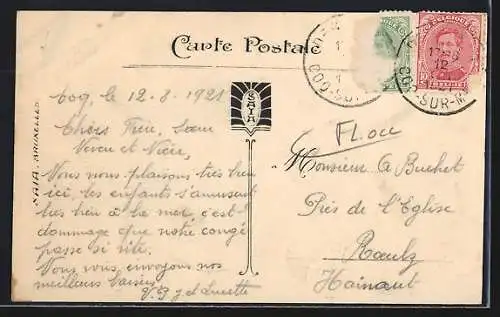 Carte Postale
Coq, le 12-8-1921
Chers Frère, Sœur
Neveu et Nièce,
Nous nous plaisons très bien
ici, les enfants s'amusent
très bien à la mer, c'est
dommage que notre congé
passe si vite.
Nous vous envoyons nos
meilleurs baisers
V. G. J et Lucette
SAIA. BRUXELLES
SAIA
COQ-SUR-M
12
BELGIQUE
10
COQ-SUR-M
Floce
Monsieur A Buchet
Près de l'Eglise
Rœulx
Hainaut